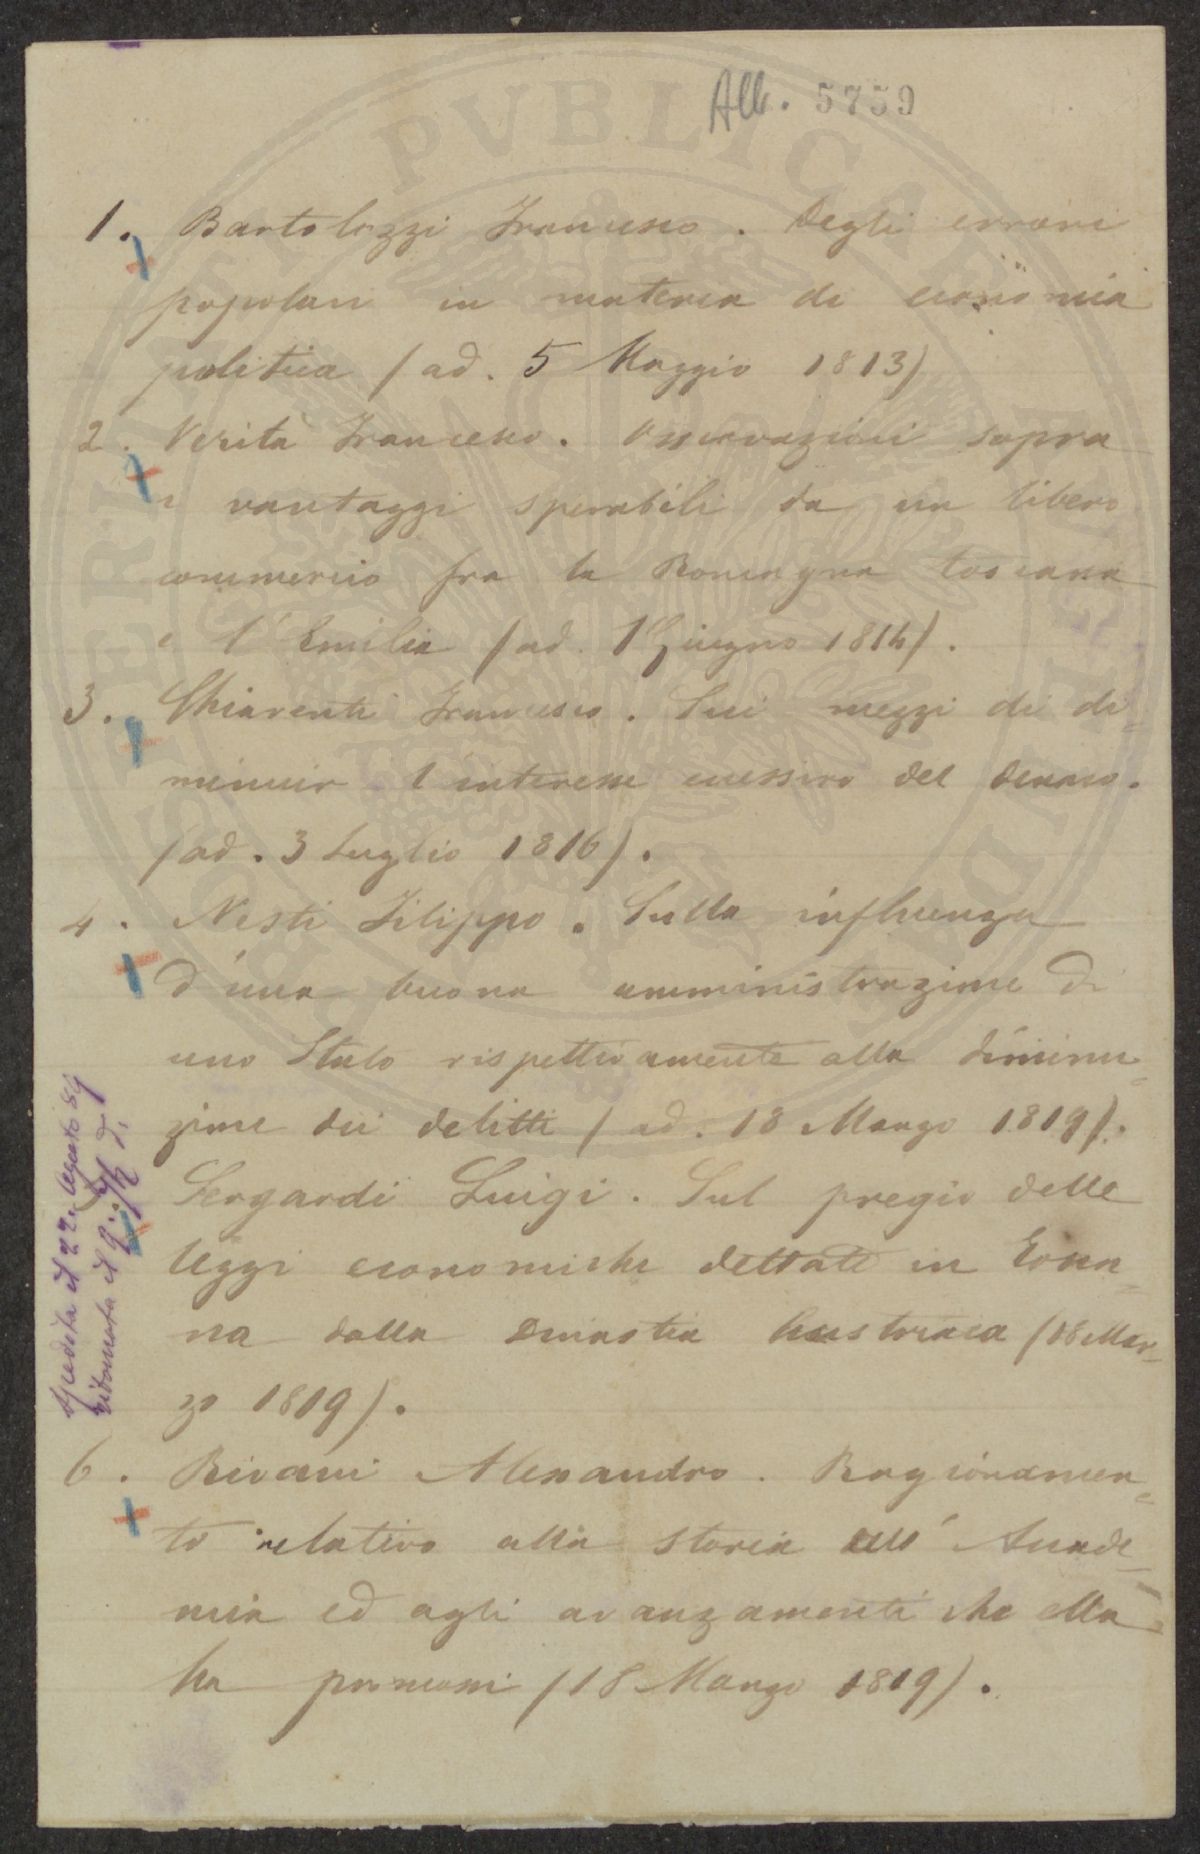 All. 5759
1. Bartolozzi Francesco. Degli errori
popolari in materia di economia
politica (ad. 5 Maggio 1813)
2. Verità Francesco. Osservazioni sopra
i vantaggi sperabili da un libero
commercio fra la Romagna toscana
e l'Emilia (ad. 1 Giugno 1814).
3. Chiarenti Francesco. Sui mezzi di di-
minuir l'interesse eccessivo del denaro.
(ad. 3 Luglio 1816).
4. Nesti Filippo. Sulla influenza
d'una buona amministrazione di
uno Stato rispettivamente alla diminu=
zione dei delitti (ad. 18 Marzo 1819).
Sergardi Luigi. Sul pregio delle
leggi economiche dettate in Tosca=
na dalla Dinastia Austriaca (18 Mar=
zo 1819).
6. Rivani Alessandro. Ragionamen=
to relativo alla storia dell'Accade=
mia ed agli avanzamenti che ella
ha promossi (18 Marzo 1819).
spedita il 22 Agosto 89
ritornata il